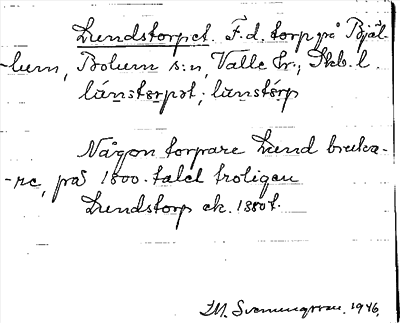 Lundstorpet. F.d. torp på Bjäl-
-lum, Bolum s:n, Valle hr., Skb. l.
lúnstərpət; lúnstə̀rp
Någon torpare Lund bruka-
-re, på 1800-talet troligen
Lundstorp ek. 1880t.
1946.